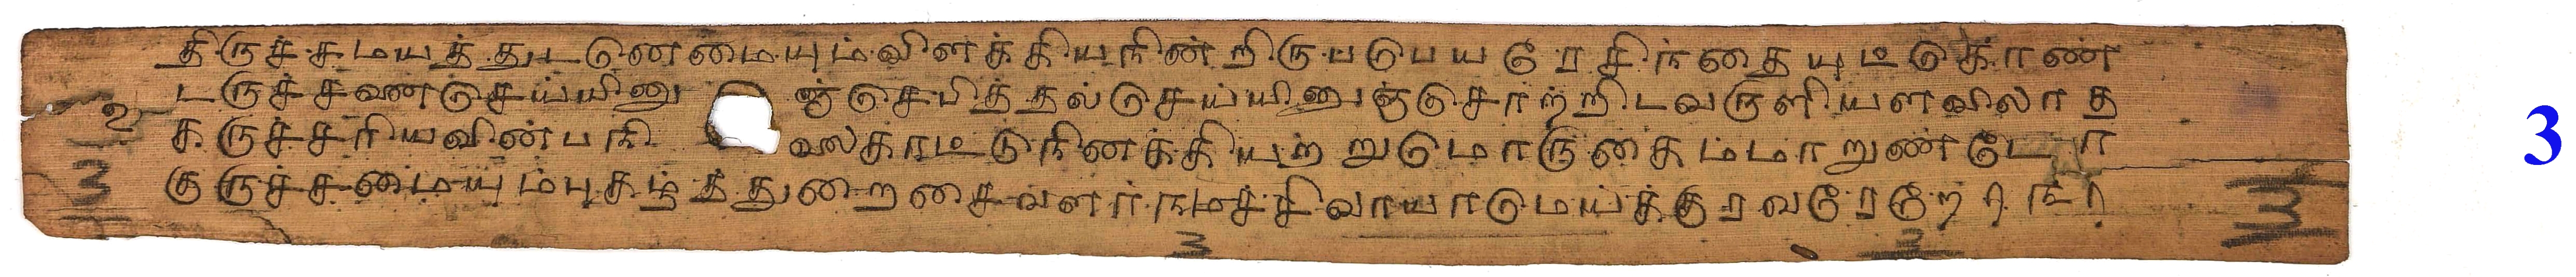 திருச்சமயத்துடனுண்மையும்விளக்கியநின்றிருபடுபயரேசிந்தையுட்கொண்
டருச்சவண்செய்யினு ஞ்செபித்தல்செய்யினுஞ்சொற்றிடவருளியளவிலாத
௨
கருச்சரியவின்பநி லகாட்டுநினக்கியற்றுமொருகைம்மாறுண்டோ
குருச்சமையும்புகழ்த்துறைசைவளர்நமச்சிவாயாமெய்க்குரவரேறே
3
3
3
3
3